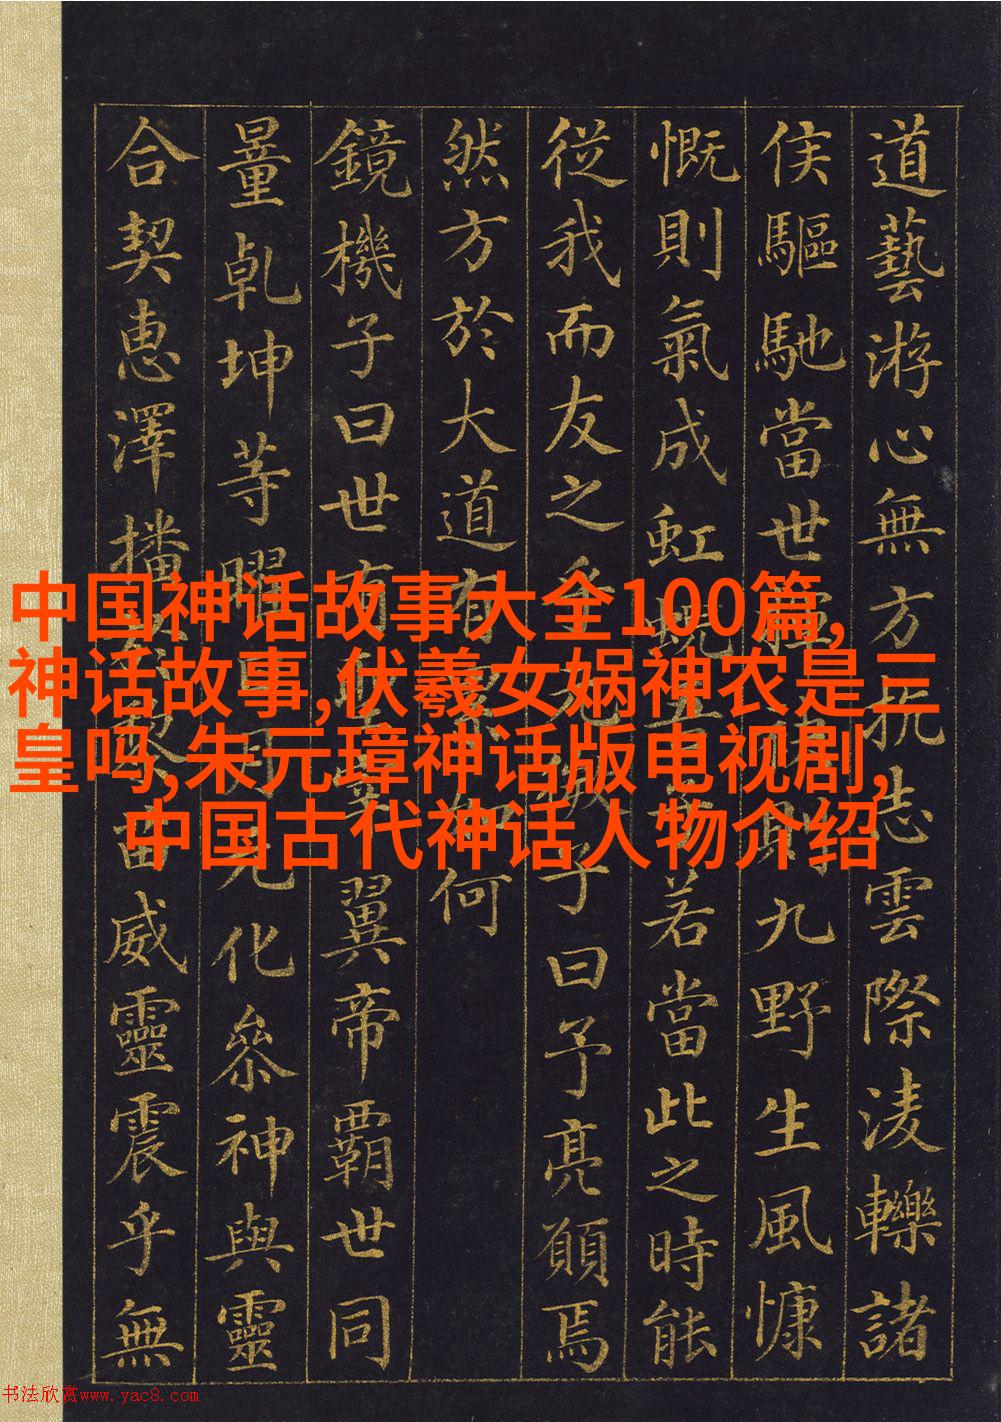 中国神话故事大全100篇,
神话故事,伏羲女娲神农是三
皇吗,朱元璋神话版电视剧,
中国古代神话人物介绍
道藝游心無方抗志雲際淩轢諸
侯驅馳當世九野生風慷
慨則氣成虹蜺若當此之時能
從我而友之乎子曰予亮願焉
然方於大道有何
鏡機子曰世有翼帝霸世同
量乾坤等曜日月玄化參神與靈
合契惠澤播威靈震乎無
书法欣赏www.yac8.com